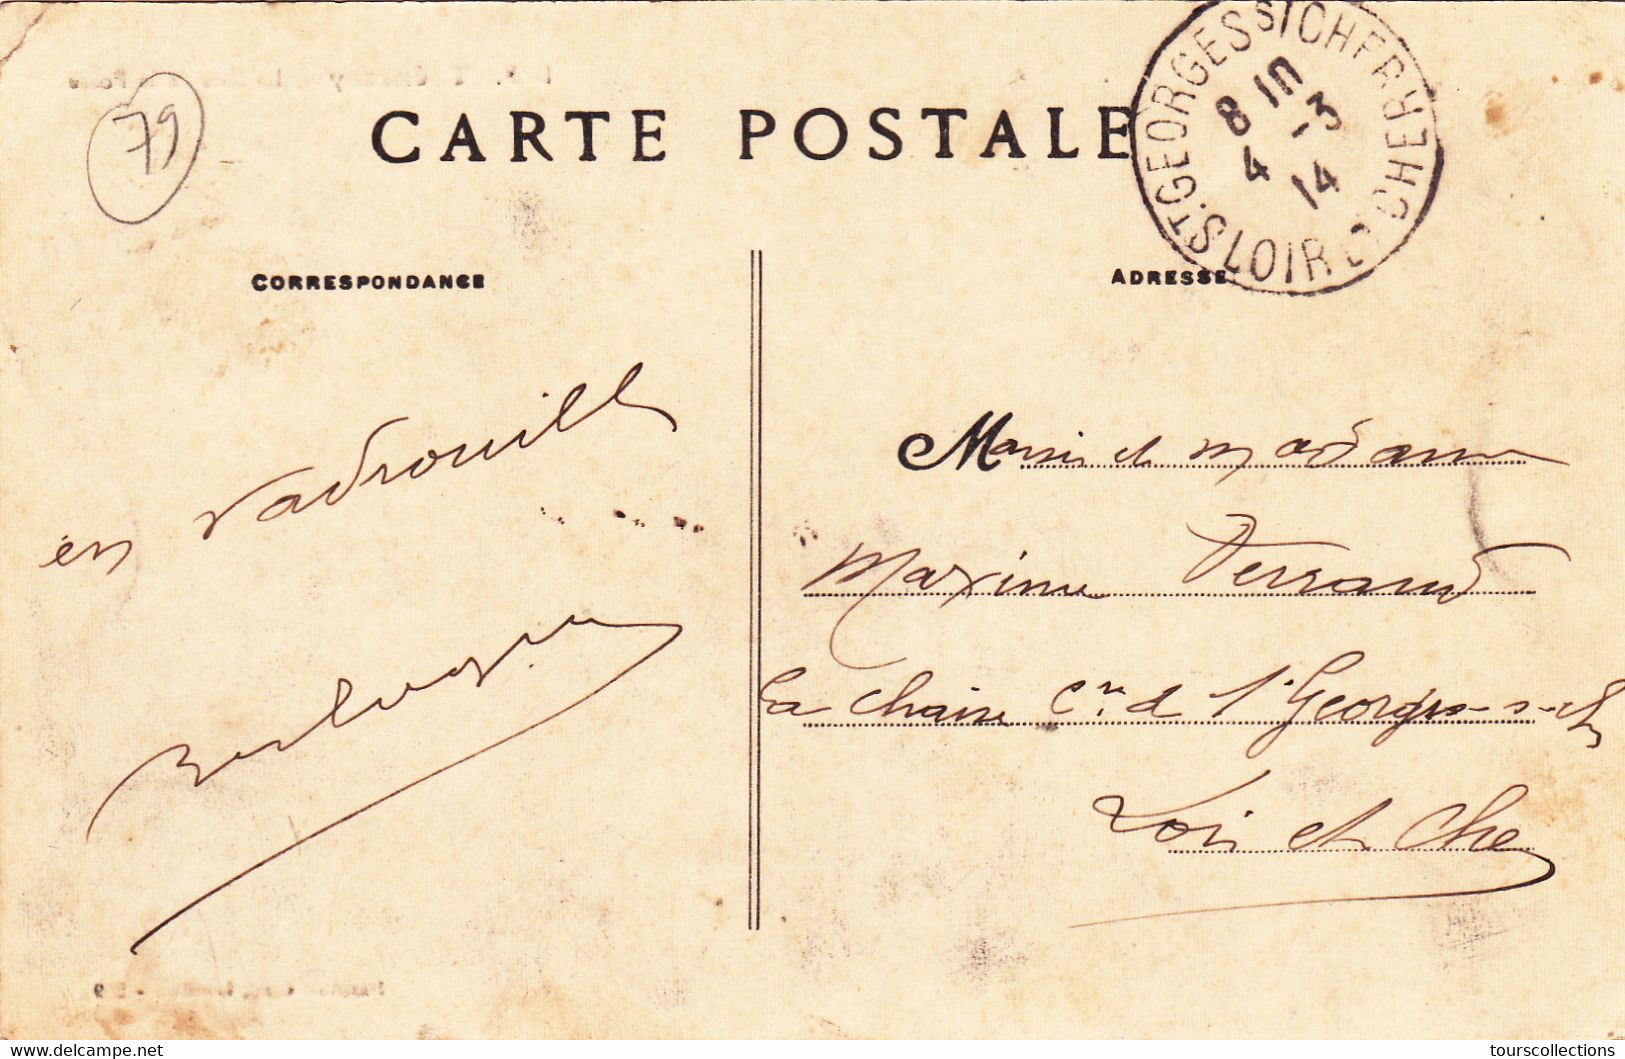 79
CARTE POSTALE
ST. GEORGES S/ CHER CHER
LOIR
8 10
4 - 3
14
CORRESPONDANCE
ADRESSE
en vadrouill
M et madame
Maxime Ferrand
La Chaise Cne de St Georges-s-Ch
Loir et Che
www.delcampe.net
tourscollections